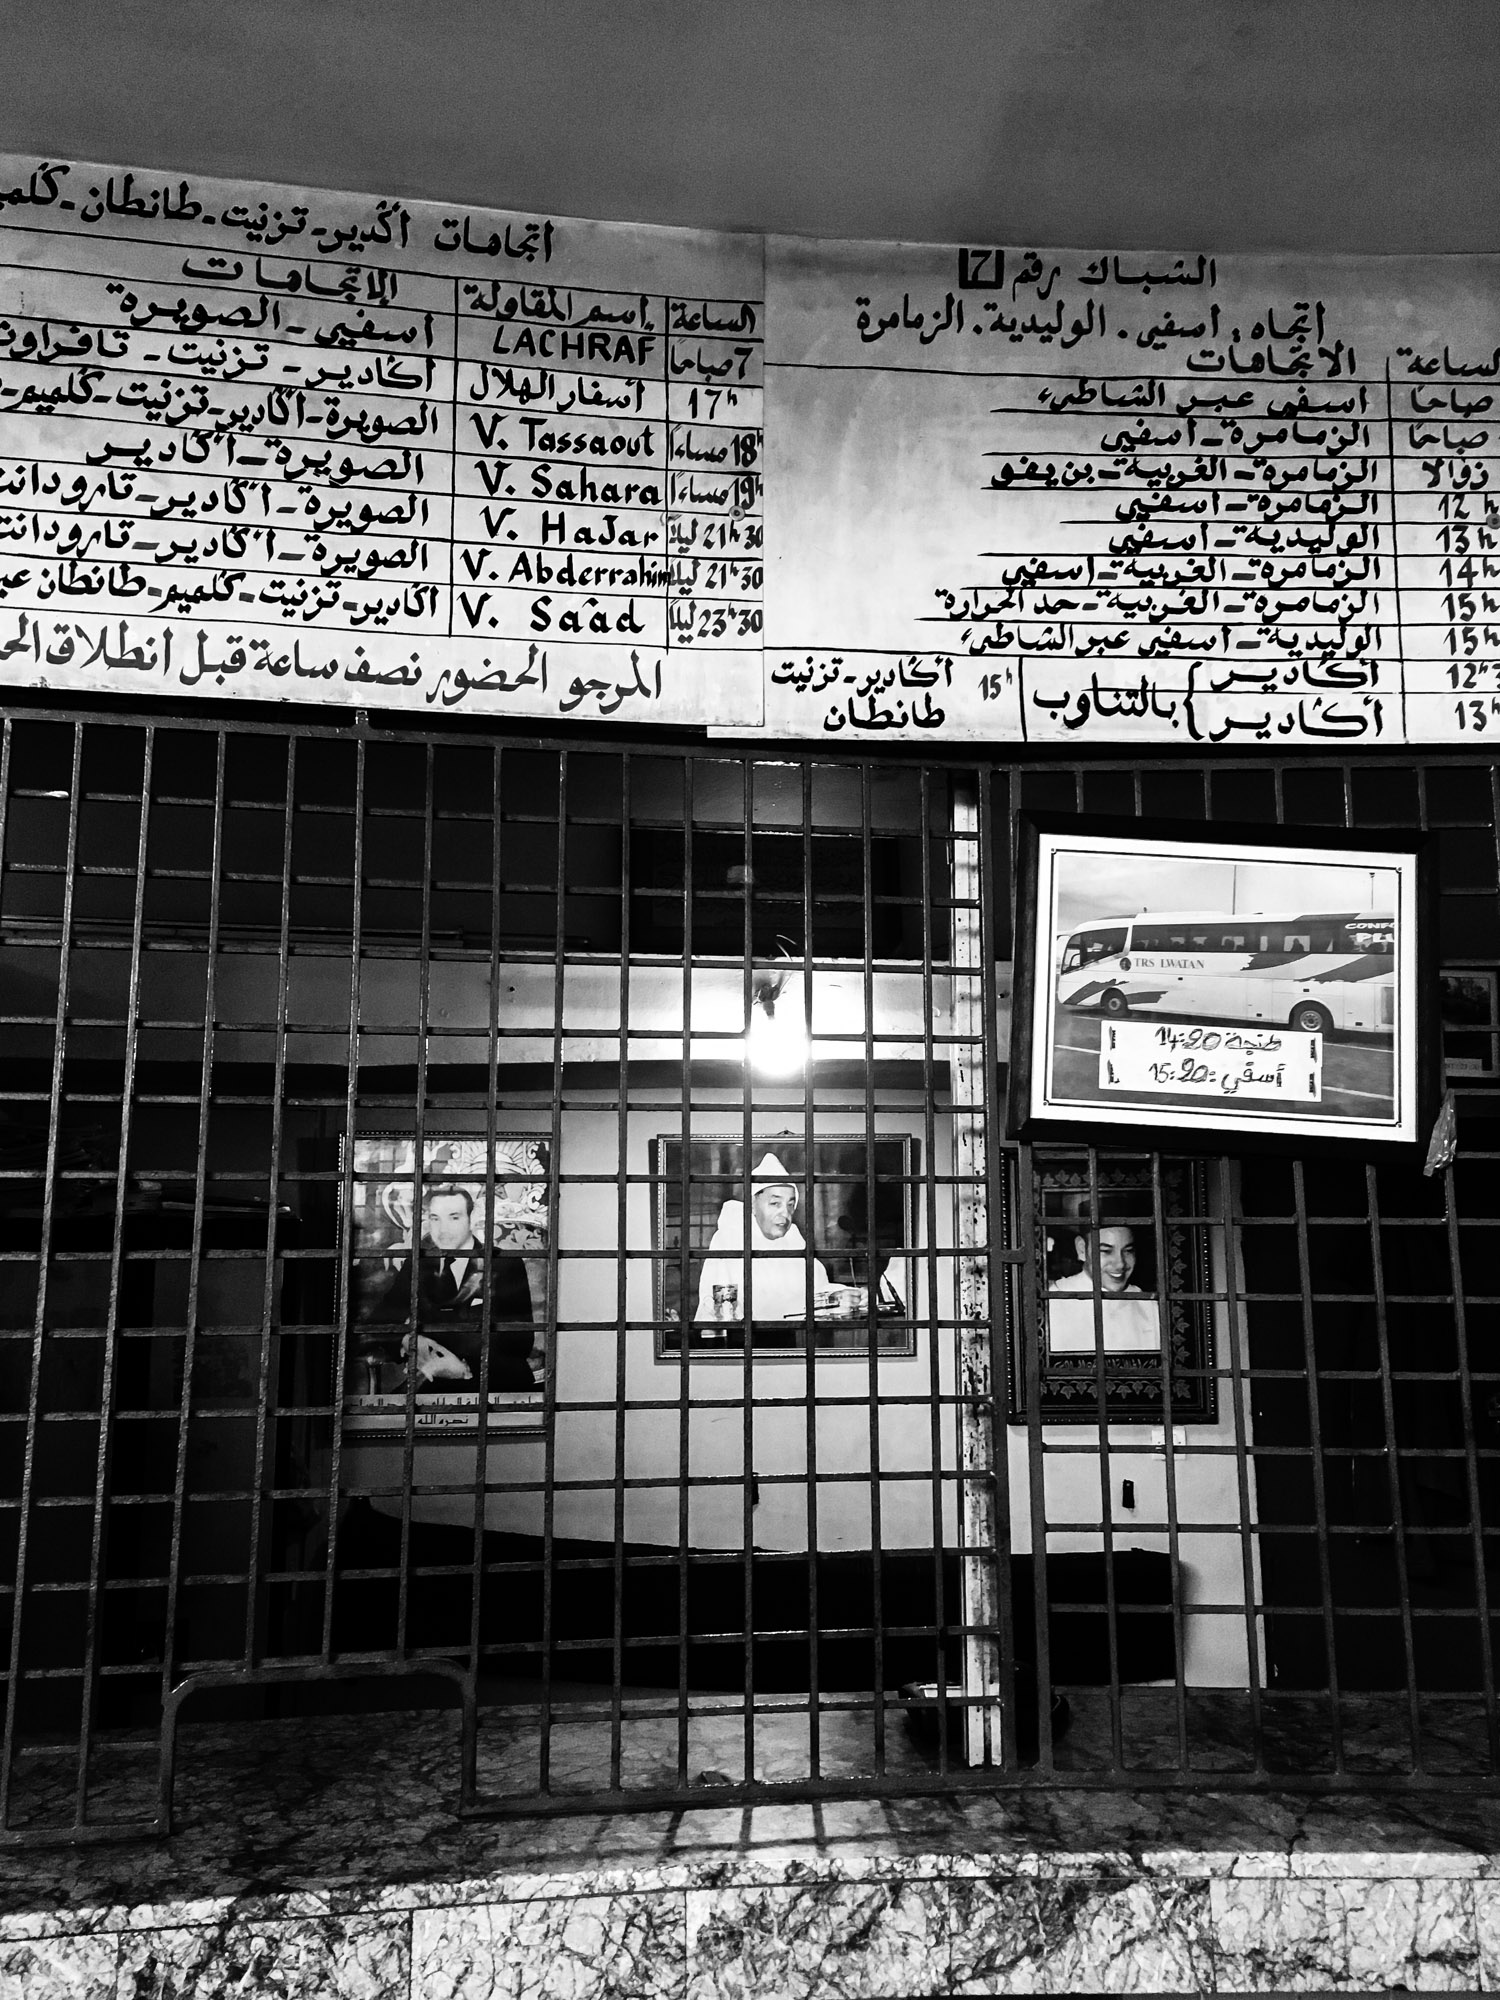 الشباك رقم 7
اتجاه: اسفي. الوليدية. الزمامرة
الساعة الاتجاهات
صباحا اسفي عبر الشاطىء
صباحا الزمامرة-اسفي
زوالا الزمامرة-الغربية-بن يفو
12h الزمامرة-اسفي
13h الوليدية-اسفي
14h الزمامرة-الغربية-اسفي
15h الزمامرة-الغربية-حد الحرارة
15h الوليدية-اسفي عبر الشاطىء
12h أكادير
13h أكادير
بالتناوب
15h أكادير-تزنيت
طانطان
اتجاهات أكدير-تزنيت-طانطان-كلميم
الساعة إسم المقاولة الإتجاهات
7 صباحا LACHRAF أسفي-الصويرة
17h أسفار الهلال أكادير-تزنيت-تافراوت
18h مساءا V. Tassaout الصويرة-أكادير-تزنيت-كلميم-
19h مساءا V. Sahara الصويرة-أكادير
21h30 ليلا V. HaJar الصويرة-أكادير-تارودانت
21h30 ليلا V. Abderrahim الصويرة-أكادير-تارودانت
23h30 ليلا V. Saad أكادير-تزنيت-كلميم-طانطان
المرجو الحضور نصف ساعة قبل انطلاق
TRS LWATAN
طنجة 14:20
أسفي: 15:20
نصره الله